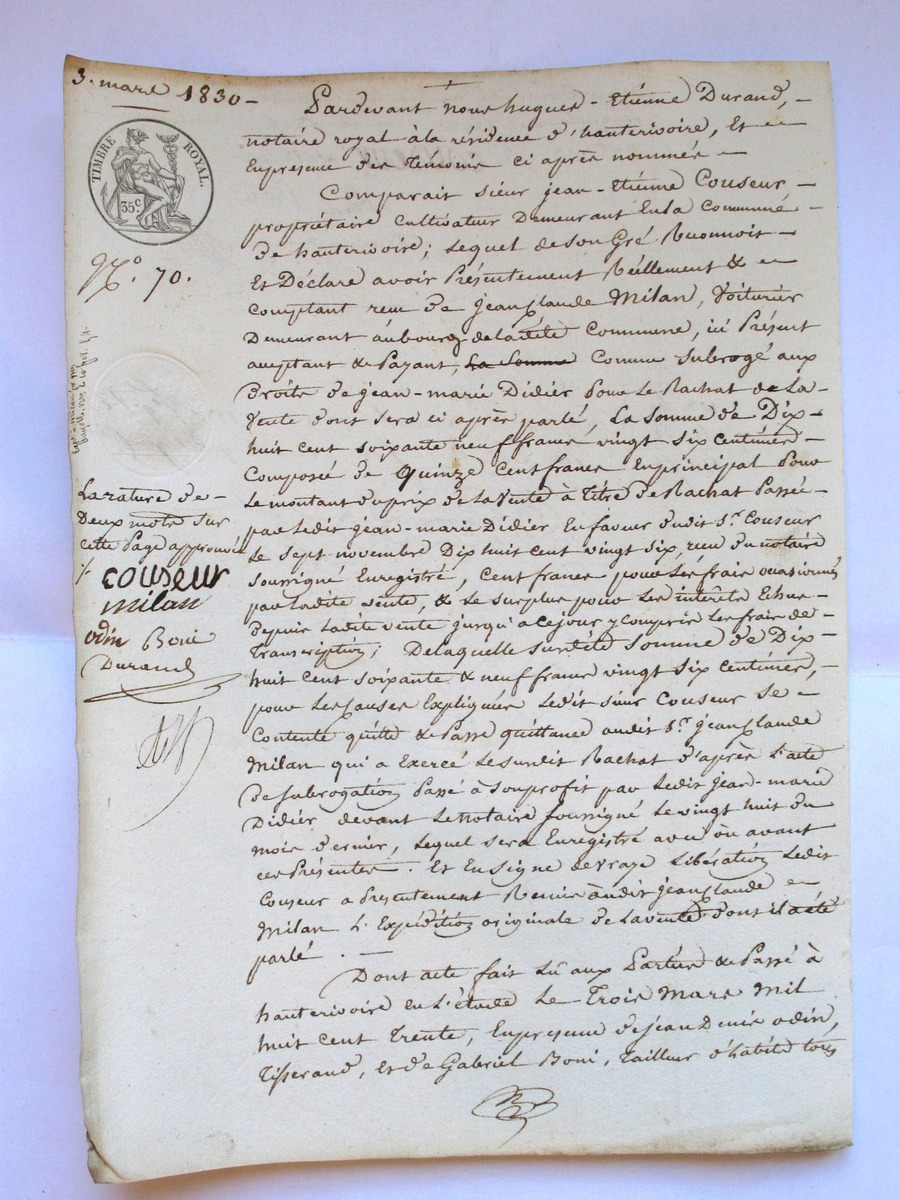 3. mars 1830 -
TIMBRE ROYAL.
35 c.
N.º 70.
La rature de
Deux mots sur
cette Page approuvée
couseur
milan
odin Boni
Durand
Pardevant nous hugues - Etiénne Durand, -
notaire royal à la résidence d'hauterivoire, Et
En présence des témoins ci après nommés -
Comparait sieur jean - Etiénne Couseur -
propriétaire cultivateur Demeurant En la Commune -
de hauterivoire; Lequel de son Gré Reconnoit -
Et Déclare avoir Présentement Réellement &
comptant reçu de jean Claude Milan, Voiturier
Demeurant au bourg de ladite Commune, ici Présent
acceptant & Payant, La Somme Comme Subrogé aux
Droits de jean - marie Didier pour Le Rachat de La
Vente dont sera ci après parlé, La somme de Dix-
huit cent soixante neuf francs vingt six centimes -
Composée de Quinze Cent francs En principal pour
Le montant du prix de La Vente à Titre de Rachat Passée -
par Ledit jean - marie Didier En faveur dudit S.r Couseur
Le sept novembre Dix huit cent vingt six, reçu du notaire
soussigné Enregistré, Cent francs pour Les frais occasionnés
par ladite vente, & Le surplus pour Les intérêts Echus
depuis Ladite vente jusqu'à ce jour y compris Les frais de
Transcription; De laquelle susdite Somme de Dix-
huit cent soixante & neuf francs vingt six centimes, -
pour Les causes Expliquées Ledit sieur Couseur se
Contente quitte & Passe quittance audit S.r jean Claude
Milan qui a Exercé Le susdit Rachat d'après L'acte
de subrogation Passé à son profit par Ledit jean - marie
Didier devant Le notaire soussigné Le vingt huit du
mois dernier, Lequel sera Enregistré avec ou avant
ces Présentes. Et En signe de vraye Libération Ledit
Couseur a Présentement Remis audit jean Claude
Milan L'Expédition originale de La vente dont il a été
parlé. -
Dont acte fait Lû aux Parties & Passé à
hauterivoire En L'étude Le Trois Mars Mil
huit cent Trente, En présence de jean Denis odin,
Tisserand, Et de Gabriel Boni, Tailleur d'habits tous